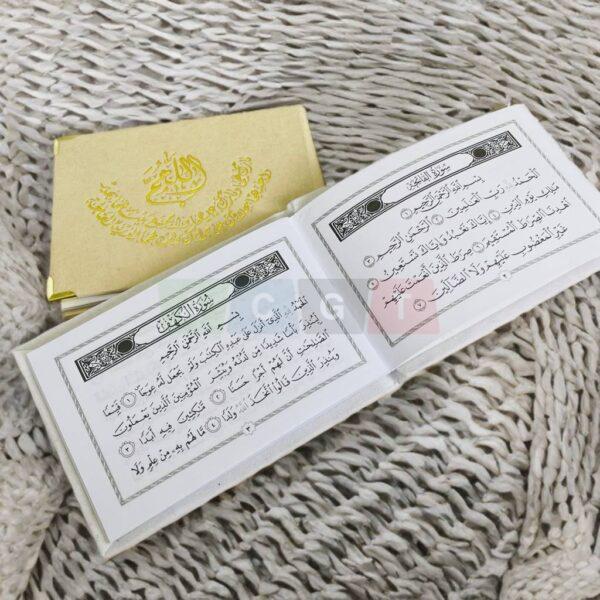 سُورَةُ الفَاتِحَةِ
بِسْمِ ٱللَّهِ ٱلرَّحْمَٰنِ ٱلرَّحِيمِ ١
ٱلْحَمْدُ لِلَّهِ رَبِّ ٱلْعَٰلَمِينَ ٢ ٱلرَّحْمَٰنِ ٱلرَّحِيمِ ٣
مَٰلِكِ يَوْمِ ٱلدِّينِ ٤ إِيَّاكَ نَعْبُدُ وَإِيَّاكَ نَسْتَعِينُ ٥
ٱهْدِنَا ٱلصِّرَٰطَ ٱلْمُسْتَقِيمَ ٦ صِرَٰطَ ٱلَّذِينَ أَنْعَمْتَ عَلَيْهِمْ
غَيْرِ ٱلْمَغْضُوبِ عَلَيْهِمْ وَلَا ٱلضَّآلِّينَ ٧
٢
سُورَةُ الكَهْفِ
بِسْمِ ٱللَّهِ ٱلرَّحْمَٰنِ ٱلرَّحِيمِ
ٱلْحَمْدُ لِلَّهِ ٱلَّذِىٓ أَنزَلَ عَلَىٰ عَبْدِهِ ٱلْكِتَٰبَ وَلَمْ يَجْعَل لَّهُۥ عِوَجَا ١ قَيِّمًا
لِّيُنذِرَ بَأْسًا شَدِيدًا مِّن لَّدُنْهُ وَيُبَشِّرَ ٱلْمُؤْمِنِينَ ٱلَّذِينَ يَعْمَلُونَ
ٱلصَّٰلِحَٰتِ أَنَّ لَهُمْ أَجْرًا حَسَنًا ٢ مَّٰكِثِينَ فِيهِ أَبَدًا ٣
وَيُنذِرَ ٱلَّذِينَ قَالُوا۟ ٱتَّخَذَ ٱللَّهُ وَلَدًا ٤ مَّا لَهُم بِهِۦ مِنْ عِلْمٍ وَلَا
٣
C G T